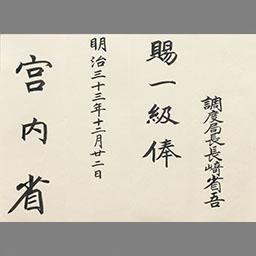 調度局長長崎省吾
賜一級俸
明治三十三年十二月廿二日
宮内省